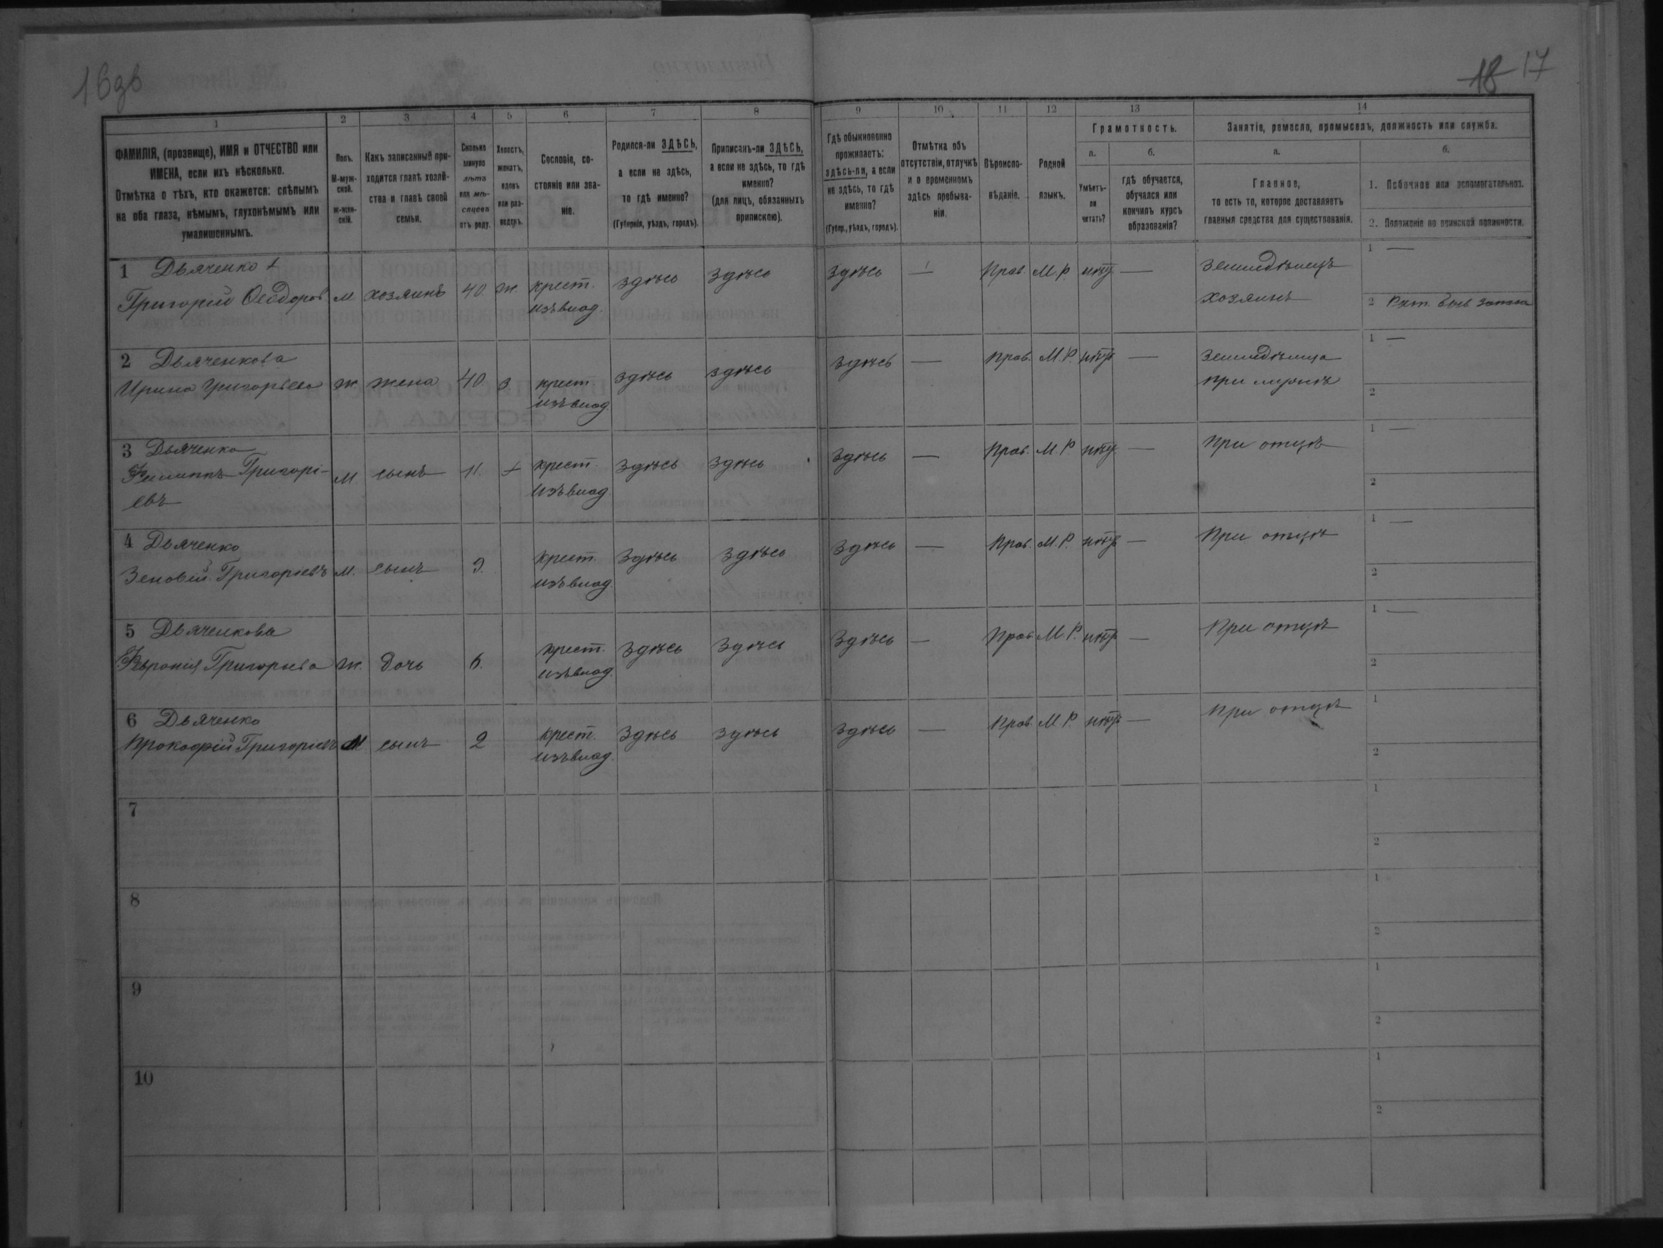 16зв
18 17
1
2
3
4
5
6
7
8
9
10
11
12
13
14
ФАМИЛІЯ, (прозвище), ИМЯ и ОТЧЕСТВО или
ИМЕНА, если ихъ нѣсколько.
Отмѣтка о тѣхъ, кто окажется: слѣпымъ
на оба глаза, нѣмымъ, глухонѣмымъ или
умалишеннымъ.
Полъ.
М-муж-
ской.
Ж-жен-
скій.
Какъ записанный при-
ходится главѣ хозяй-
ства и главѣ своей
семьи.
Сколько
минуло
лѣтъ
или мѣ-
сяцевъ
отъ роду.
Холостъ,
женатъ,
вдовъ
или раз-
веденъ.
Сословіе, со-
стояніе или зва-
ніе.
Родился-ли ЗДѢСЬ,
а если не здѣсь,
то гдѣ именно?
(Губернія, уѣздъ, городъ).
Приписанъ-ли ЗДѢСЬ,
а если не здѣсь, то гдѣ
именно?
(для лицъ, обязанныхъ
припискою).
Гдѣ обыкновенно
проживаетъ:
здѣсь-ли, а если
не здѣсь, то гдѣ
именно?
(Губер., уѣздъ, городъ).
Отмѣтка объ
отсутствіи, отлучкѣ
и о временномъ
здѣсь пребыва-
ніи.
Вѣроиспо-
вѣданіе.
Родной
языкъ.
Грамотность.
а.
Умѣетъ-
ли
читать?
б.
гдѣ обучается,
обучался или
кончилъ курсъ
образованія?
Занятіе, ремесло, промыселъ, должность или служба.
а.
Главное,
то есть то, которое доставляетъ
главныя средства для существованія.
б.
1. Побочное или вспомогательное.
2. Положеніе по воинской повинности.
1 Дьяченко
Григорій Ѳеодоров М хозяинъ 40 Ж крест. здѣсь здѣсь здѣсь — Прав. М.Р. нѣтъ — Земледѣлецъ 1 —
изъ влад. хозяинъ 2
2 Дьяченкова
Ирина Григорьева Ж жена 40 З крест. здѣсь здѣсь здѣсь — Прав. М.Р. нѣтъ — Земледѣлица 1 —
изъ влад. при мужѣ 2
3 Дьяченко
Филиппъ Григорі- М сынъ 11 крест. здѣсь здѣсь здѣсь — Прав. М.Р. нѣтъ — При отцѣ 1 —
евъ изъ влад. 2
4 Дьяченко
Зеновій Григоріевъ М. сынъ 9 крест. здѣсь здѣсь здѣсь — Прав. М.Р. нѣтъ — При отцѣ 1 —
изъ влад. 2
5 Дьяченкова
Григорьева Ж. дочь 6 крест. здѣсь здѣсь здѣсь — Прав. М.Р. нѣтъ — При отцѣ 1 —
изъ влад. 2
6 Дьяченко
Прокофій Григоріевъ М сынъ 2 крест. здѣсь здѣсь здѣсь — Прав. М.Р. нѣтъ — При отцѣ 1
изъ влад. 2
7 1
2
8 1
2
9 1
2
10 1
2